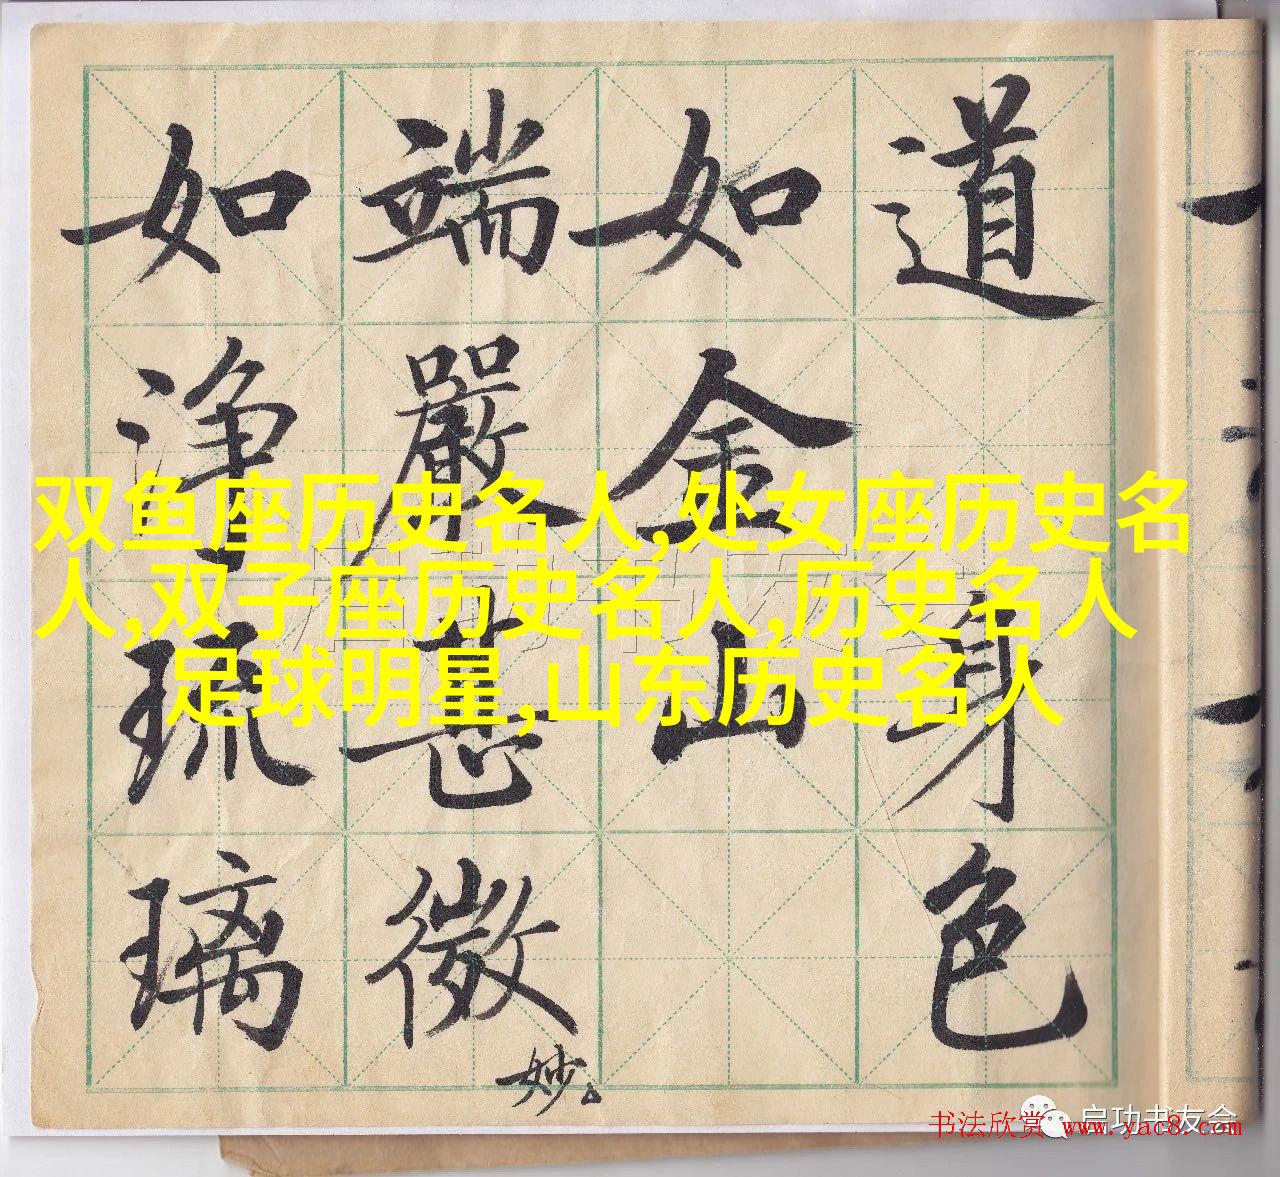 道身色
如金山
端嚴甚微妙
如浄琉璃
双鱼座历史名人,处女座历史名
人,双子座历史名人,历史名人
足球明星,山东历史名人
启功书友会
书法欣赏 www.yac8.com